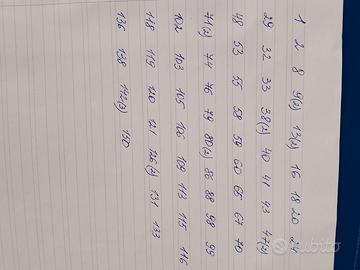 1 2 8 9(2) 13(2) 16 18 20 24
29 32 33 38(2) 40 41 43 47(2)
48 53 55 58 59 60 65 67 70
71(2) 74 76 79 80(2) 86 88 98 99
102 103 105 106 109 113 115 116
118 119 120 121 126(2) 131 133
136 138 142(2) 150
subito